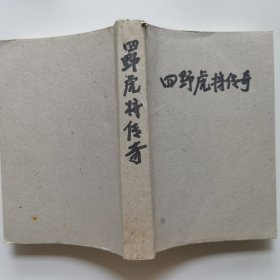 四野虎将传奇
四野虎将传奇